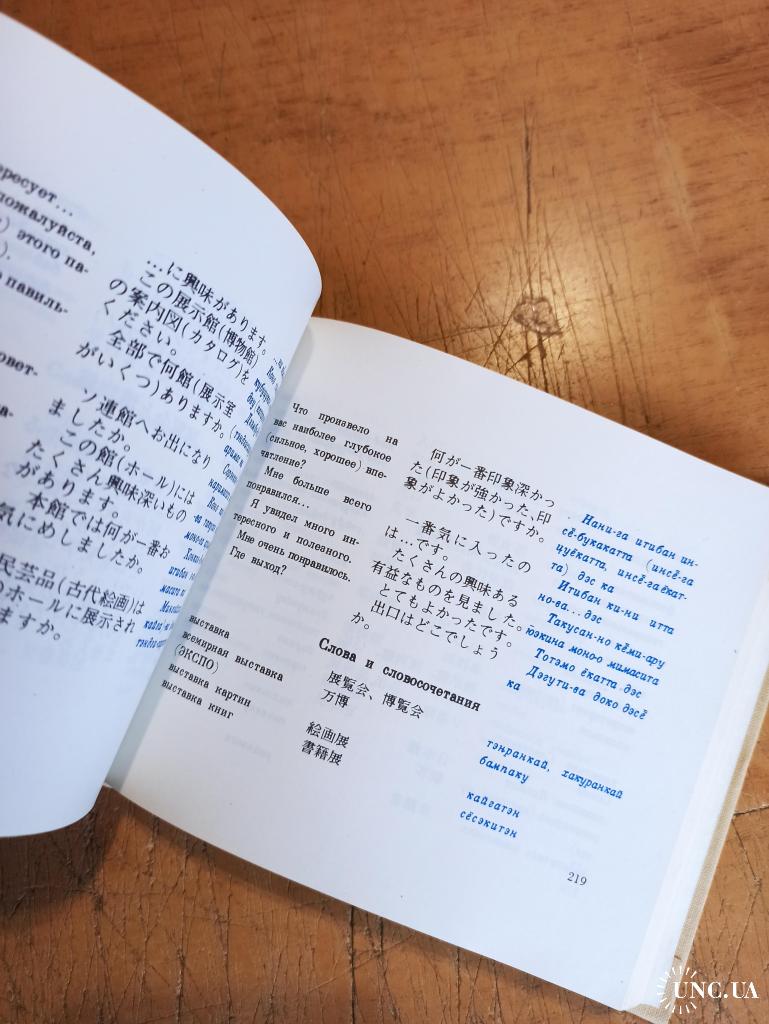 ресует...
пожалуйста,
этого па-
павиль-
...に興味があります。
この展示館(博物館)
の案内図(カタログ)を
ください。
全部で何館(展示室
がいくつ)ありますか。
ソ連館へお出になり
ましたか。
この館(ホール)には
たくさん興味深いもの
があります。
本館では何が一番お
気にめしましたか。
民芸品(古代絵画)は
のホールに展示され
ますか。
Что произвело на
вас наиболее глубокое
(сильное, хорошее) впе-
чатление?
Мне больше всего
понравился...
Я увидел много ин-
тересного и полезного.
Мне очень понравилось.
Где выход?
何が一番印象深かっ
た(印象が強かった、印
象がよかった)ですか。
一番気に入ったの
は...です。
たくさんの興味ある
有益なものを見ました。
とてもよかったです。
出口はどこでしょう
か。
Нани-га итибан ин-
сё-букакатта (инсё-га
цуёкатта, инсё-га ёкат-
та) дэс ка
Итибан ки-ни итта
но-ва...дэс
Такусан-но кёми-ару
юэкина моно-о мимасита
Тотэмо ёкатта дэс
Дэгути-ва доко дэсё
ка
Слова и словосочетания
выставка
всемирная выставка
(ЭКСПО)
выставка картин
выставка книг
展覧会、博覧会
万博
絵画展
書籍展
тэнранкай, хакуранкай
бампаку
кайгатэн
сёсэкитэн
219
UNC.UA